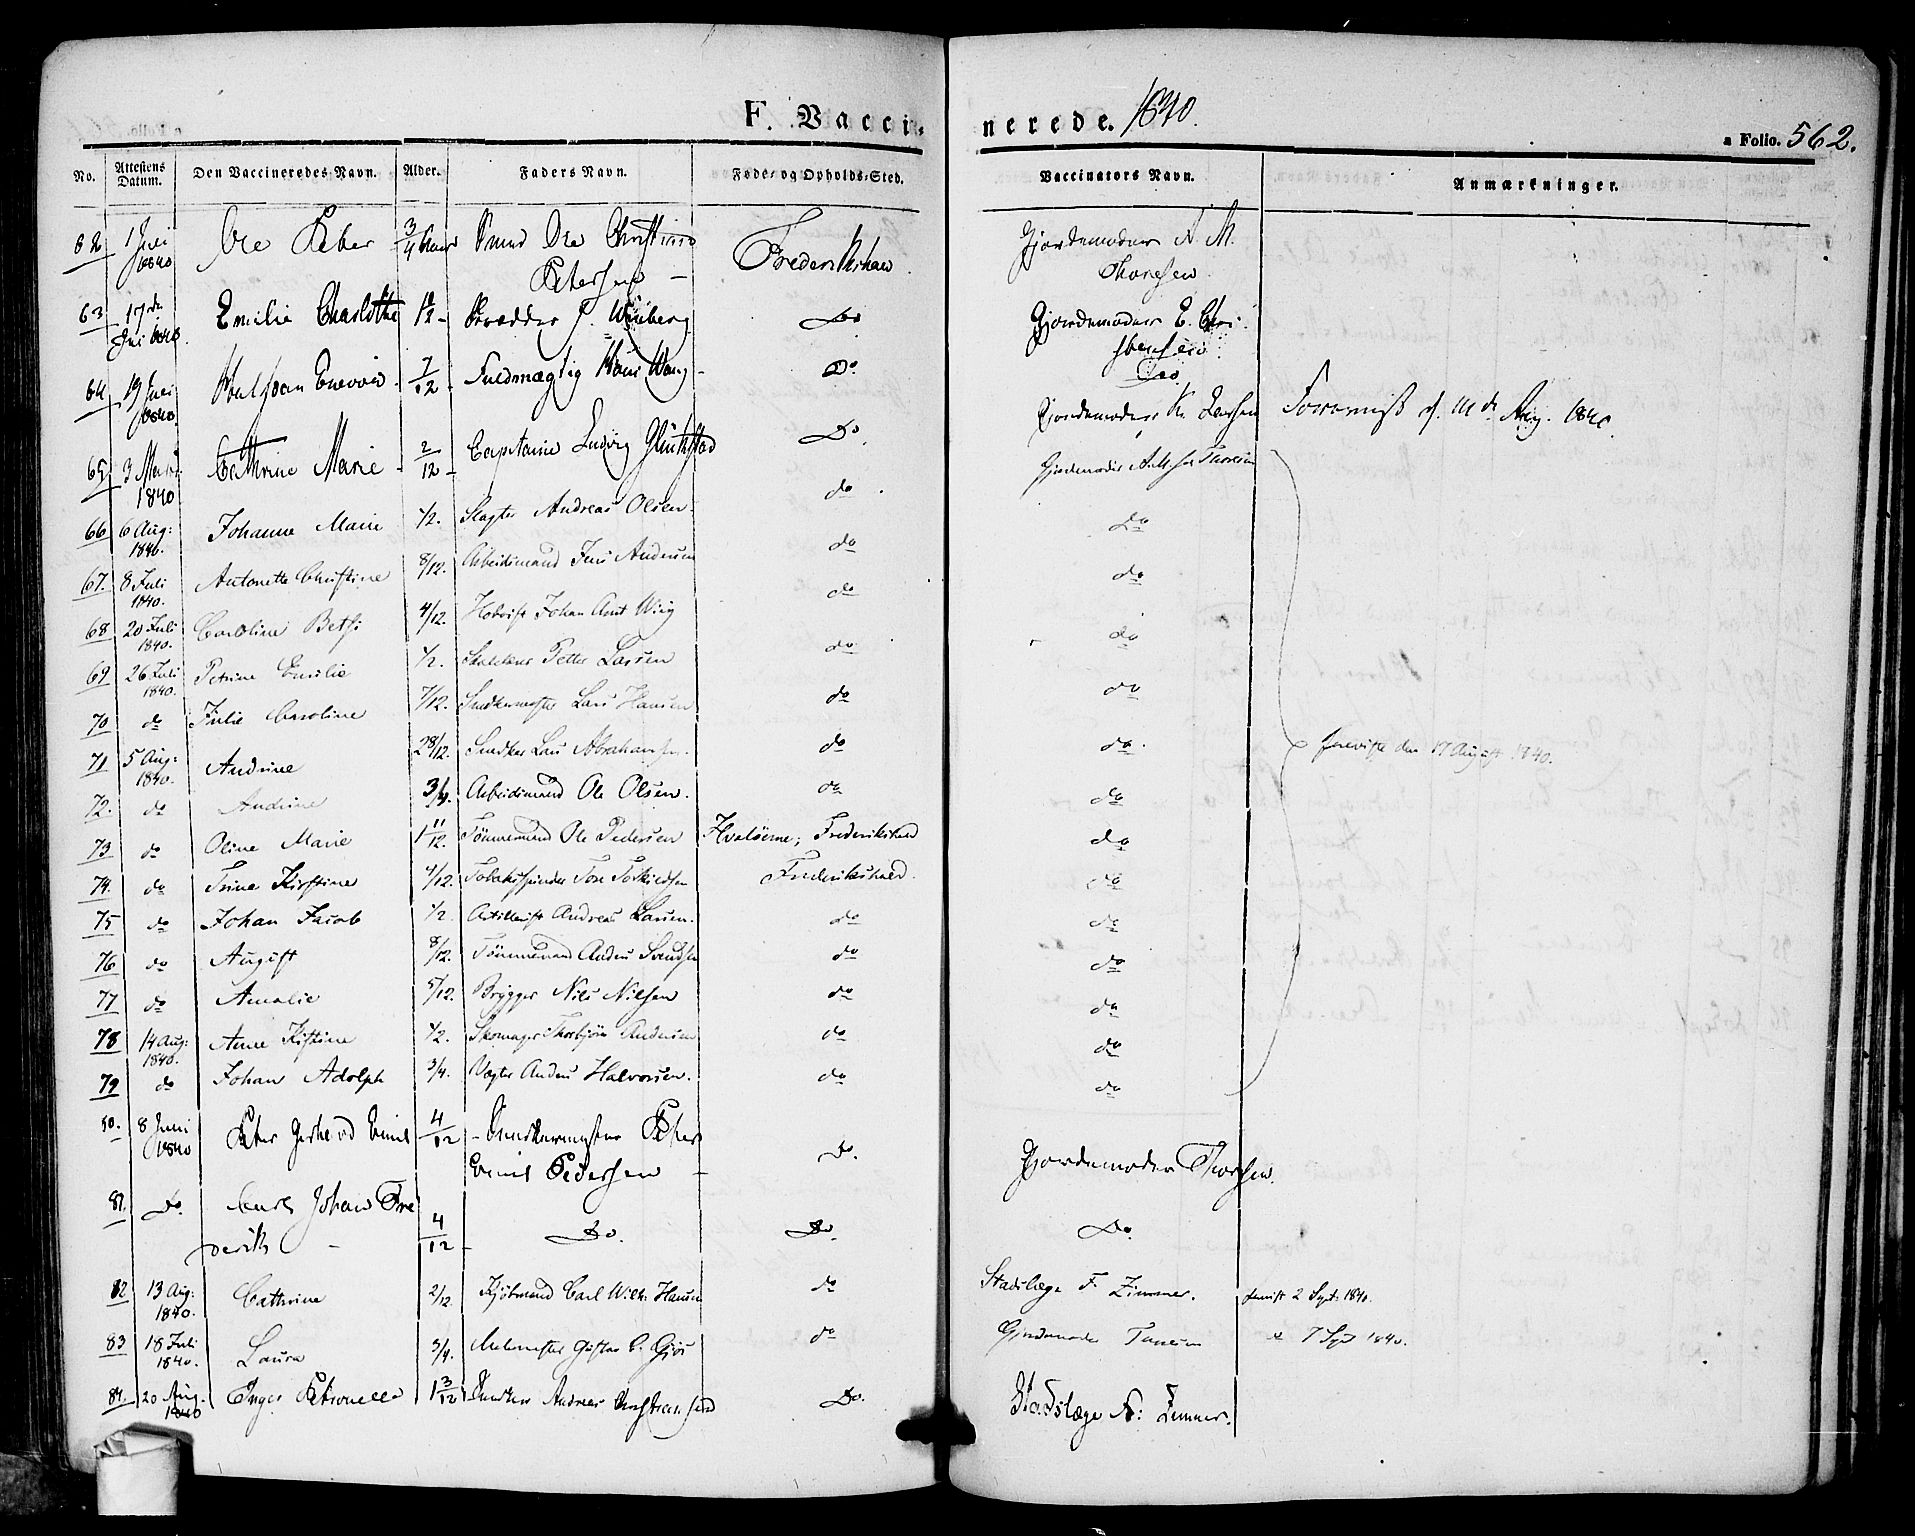 F. Vacci-
nerede. 1840.
a Folio. 562.
No. Attestens Datum. Den Vaccineredes Navn. Alder. Faders Navn. Føde- og Opholds-Sted. Vaccinators Navn. Anmærkninger.
62 1 Juli 1840 Ole Peter 3/4 Smed Ole Christian Petersen Frederikshald Gjordemoder A. M. Thoresen
63 17de Juni 1840 Emilie Charlotte Skrædder Do Gjordemoder E. Christensen
64 19 Juni 1840 7/12 Fuldmægtig Do Do
65 3 1840 Cathrine Marie 2/12 Capitaine Ludvig Do Gjordemoder Larsen Forevist d. Aug. 1840.
66 6 Aug: 1840. Johanne Marie 1/2. Slagter Andreas Olsen. do Gjordemoder Thoresen
67. 8 Juli 1840. Antonette Christine 8/12. Arbeidsmand Jens Andersen do do
68 20 Juli 1840. Caroline Betsi 4/12. Johan do do
69 26 Juli 1840. Petrine Emilie 1/2. Petter Larsen do do
70 do Julie Caroline 7/12. Snedkermester Lars Hansen do do
71 5 Aug: 1840. Andrine 2 8/12. Snedker Lars Abrahamsen. do do. forevist den 17 August 1840.
72. do Andrine 3/4. Arbeidsmand Ole Olsen. do do
73 do Oline Marie 1 11/12. Tømmermand Ole Pedersen Hvaløerne; Frederikshald do
74. do Trine Kirstine 4/12. Tobaksspinder Frederikshald. do
75 do Johan Jacob 1/2. Artillerist Andreas Larsen. do do
76 do August 8/12. Tømmermand Anders Svendsen do do
77 do Amalie 5/12. Brygger Nils Nilsen do do
78 14 Aug: 1840. Anne Kistine 1/2. Skomager Thorbjørn Andersen do do
79 do Johan Adolph 3/4. Vægter Anders Halvorsen. do do
80. 8 Juni 1840 Peter Gerhard Emil 4/12 Snedkermester Peter Emil Pedersen Do. Gjordemoder Thoresen.
81. Do. Carl Johan Frederik 4/12 Do. Do. Do.
82 13 Aug: 1840. Cathrine 2/12. Kjøbmand Carl Wilh: Hansen do Stadslæge F. Zimmer. forevist 2 Sept: 1840.
83 18 Juli 1840. Laura 3/4. Malermester Gustav C. do Gjordemoder 7 Sept 1840.
84. 20 Aug. 1840 Inger Petronelle 1 3/12 Snedker Andreas Christiansen Do. Stadslæge F: Zimmer.